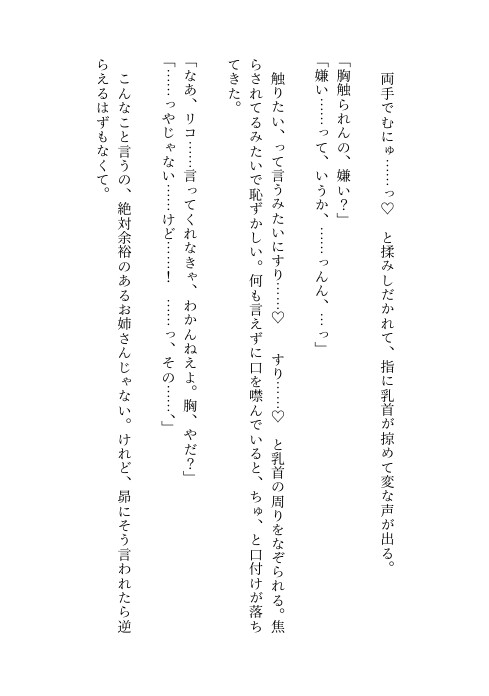 両手でむにゅ……っ♡　と揉みしだかれて、指に乳首が掠めて変な声が出る。
「胸触られんの、嫌い？」
「嫌い……って、いうか、……っんん、…っ」
触りたい、って言うみたいにすり……♡　すり……♡　と乳首の周りをなぞられる。焦
らされてるみたいで恥ずかしい。何も言えずに口を噤んでいると、ちゅ、と口付けが落ち
てきた。
「なあ、リコ……言ってくれなきゃ、わかんねえよ。胸、やだ？」
「……っやじゃない……けど……！　……っ、その……、」
こんなこと言うの、絶対余裕のあるお姉さんじゃない。けれど、昴にそう言われたら逆
らえるはずもなくて。